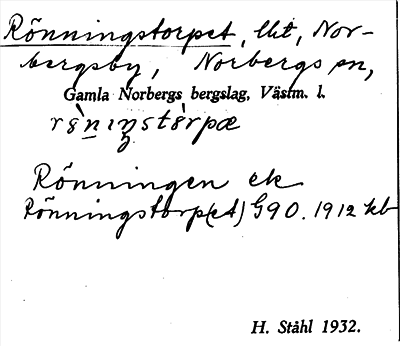 Rönningstorpet, llit, Nor-
bergsby, Norbergs sn,
Gamla Norbergs bergslag, Västm. l.
rö̀niŋstòrpæ
Rönningen ek
Rönningstorp(et) G90. 1912 kb
H. Ståhl 1932.